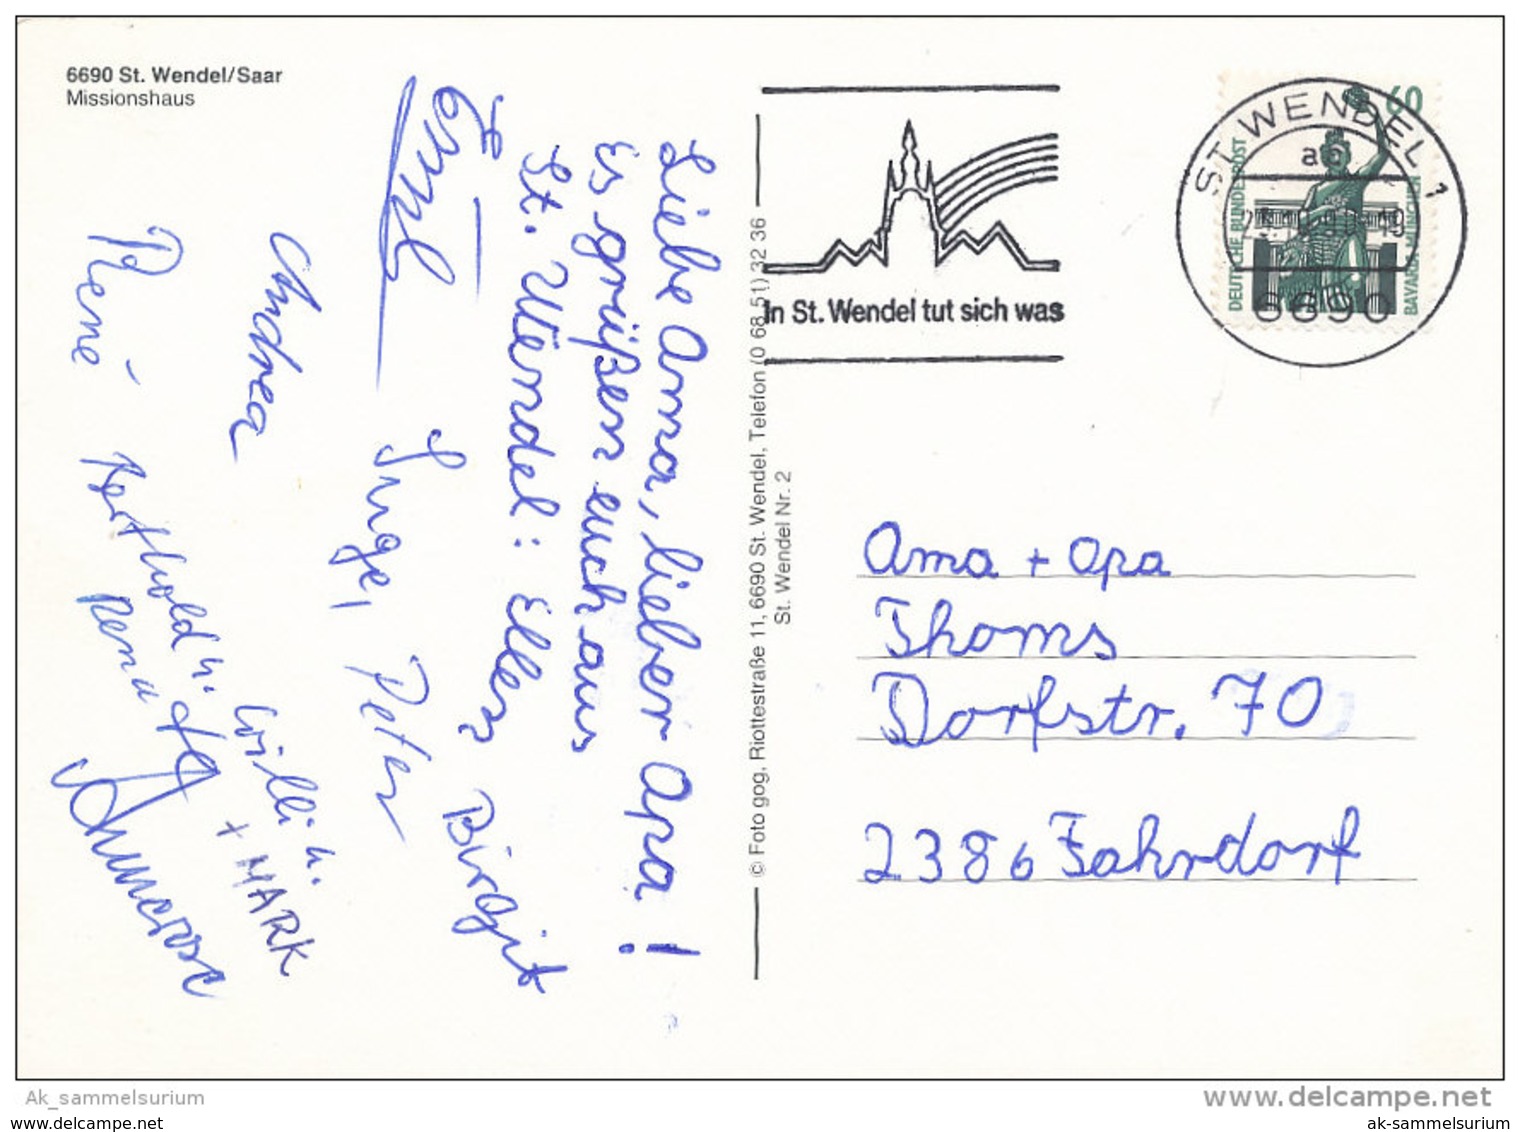 6690 St. Wendel/Saar
Missionshaus
Liebe Oma, lieber Opa!
Es grüßen euch aus
St. Wendel: Ellen Birgit
Inge, Peter
Andrea
Willi u.
+ MARK
René
Berthold u.
Renate
Annerose
© Foto gog, Riottestraße 11, 6690 St. Wendel, Telefon (0 68 51) 32 36
St. Wendel Nr. 2
In St. Wendel tut sich was
ST WENDEL 1
6690
60
DEUTSCHE BUNDESPOST
BAVARIA MÜNCHEN
Oma + Opa
Thoms
Dorfstr. 70
2386 Fahrdorf
Ak_sammelsurium
www.delcampe.net
www.delcampe.net
ak-sammelsurium